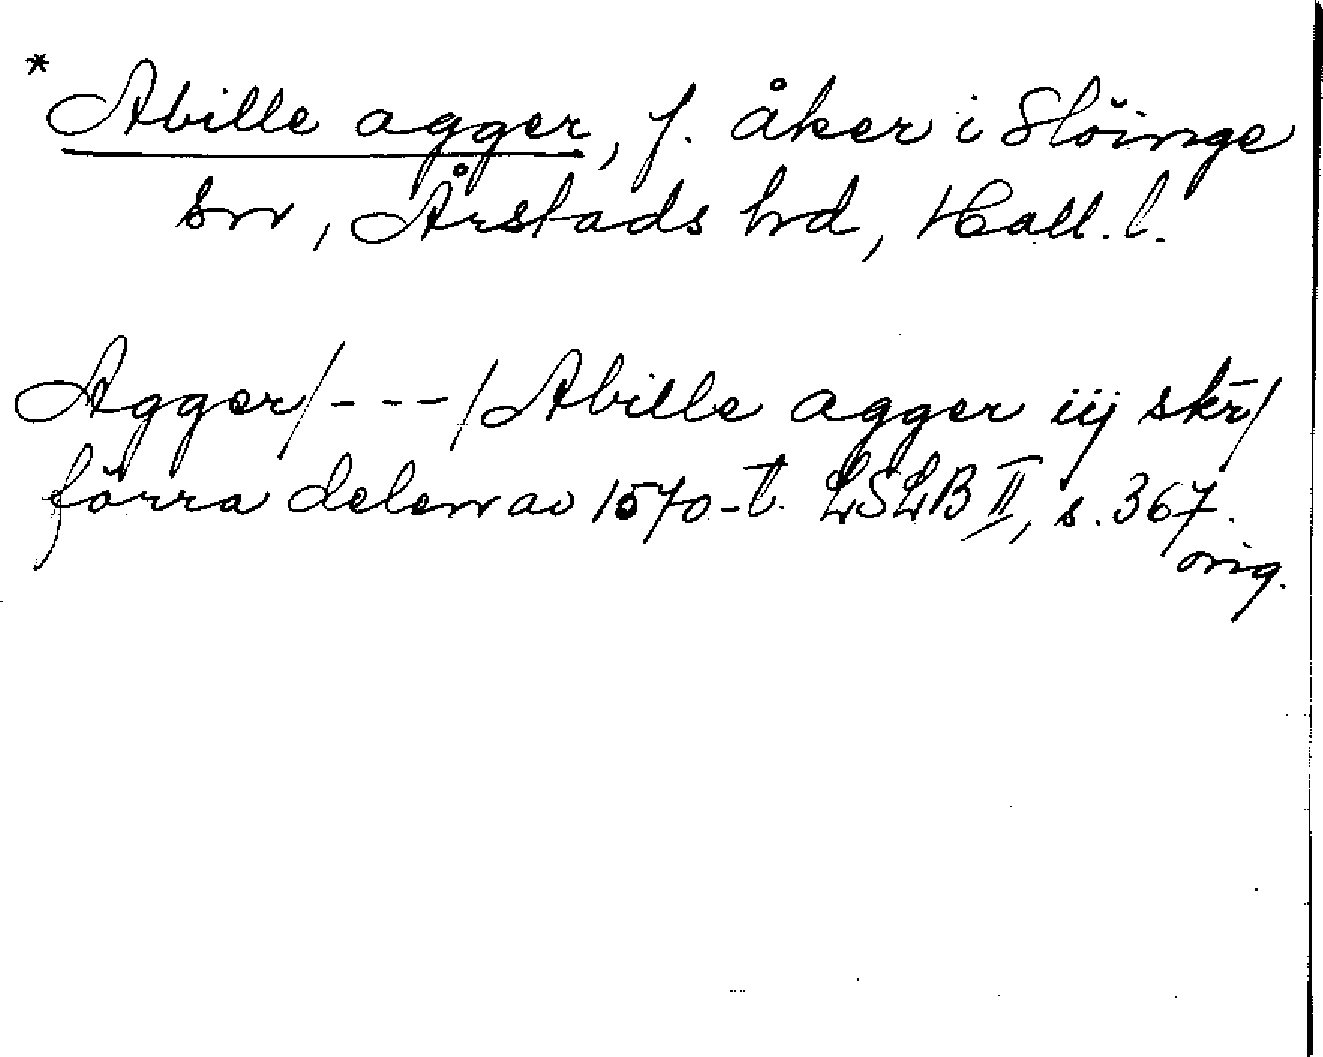 *Abille agger, f. åker i Slöinge
sn, Årstads hd, Hall. l.
Agger/---/Abille agger iij skr̄/
förra delen av 1570-t. LSLB II, s. 367.
orig.